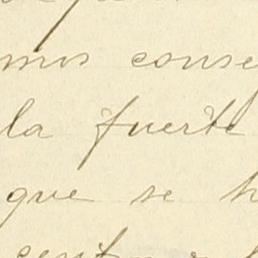 mos conse
la fuerte
que se h